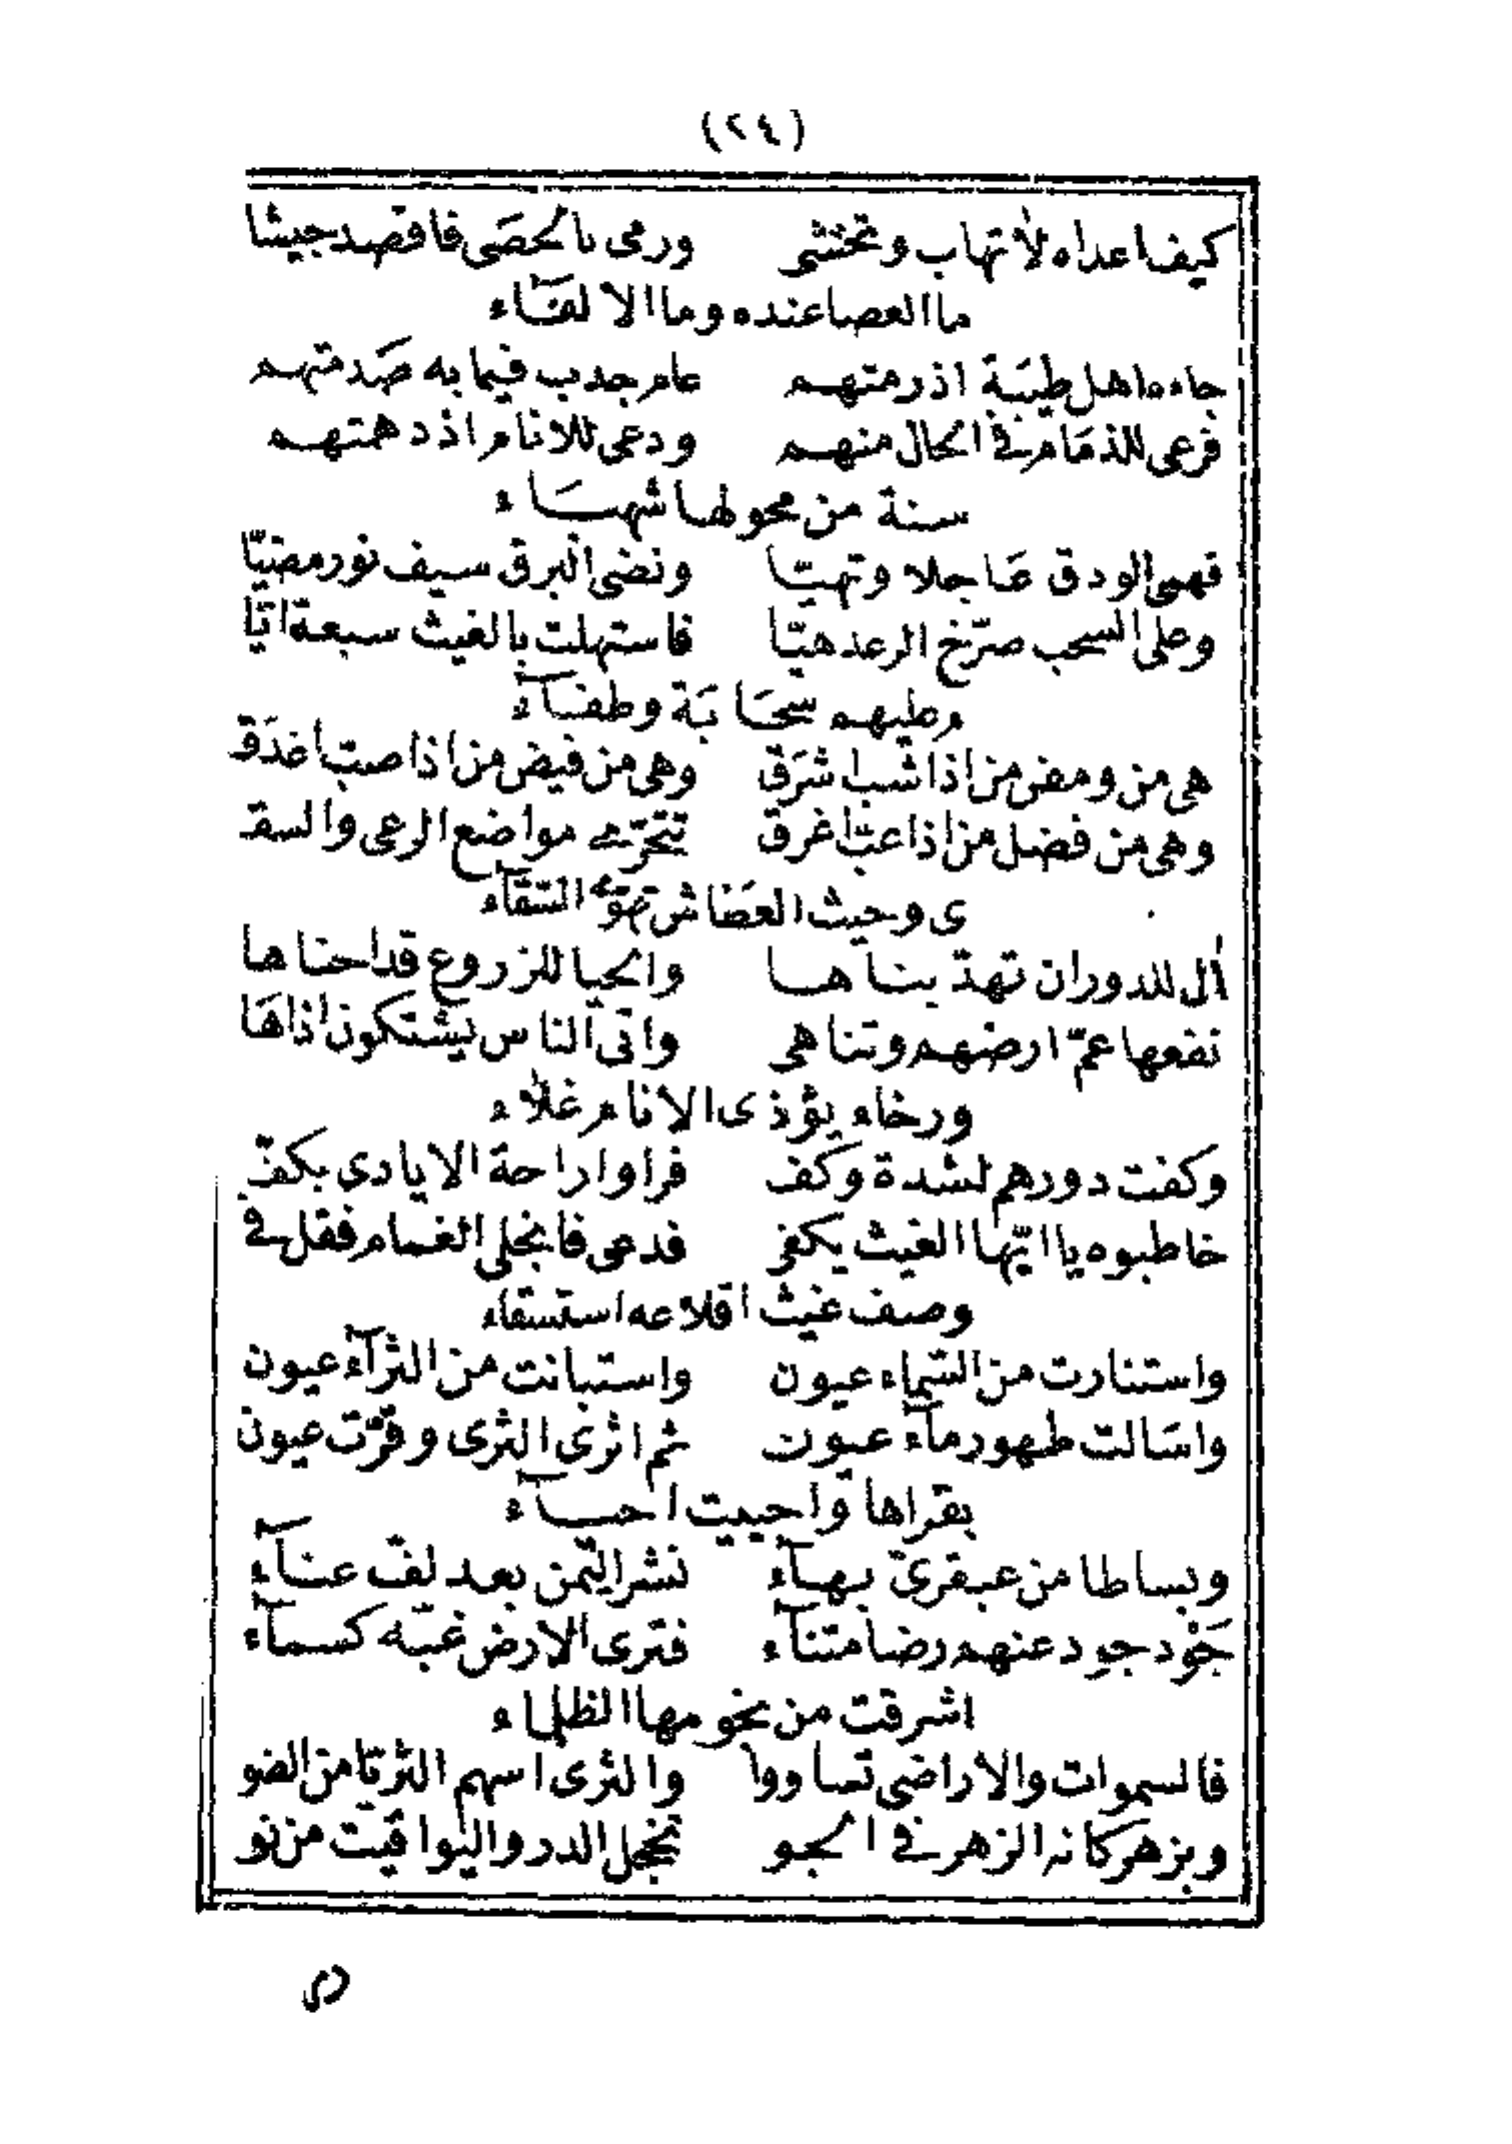 (٢٤)
كيف اعداه لا تهاب وتختشى ورمى بالحصى فاقصد جيشا
ما العصا عنده وما الالقاء
جاءه اهل طيبة اذ رمتهم عام جدب فيما به صدمتهم
فرعى للذمام فى الحال منهم ودعى للانام اذ دهمتهم
سنة من محولها شهباء
فهمى الودق عاجلا وتهيّا ونضى البرق سيف نور مضيّا
وعلى السحب صرّخ الرعد هيّا فاستهلت بالغيث سبعة ايّا
م عليهم سحابة وطفآء
هى من ومض من اذا شب اشرق وهى من فيض من اذا صب اغدق
وهى من فضل من اذا عبّ اغرق تتحرّى مواضع الرعى والسقـ
ى وحيث العطاش توهى السقآء
أل للدوران تهدّ بناها والحيا للزروع قد احناها
نفعها عمّ ارضهم وتناهى واتى الناس يشتكون اذاها
ورخاء يؤذى الانام غلاء
وكفت دورهم لشدة وكف فراوا راحة الايادى بكفّ
خاطبوه يا ايّها الغيث يكفى فدعى فانجلى الغمام فقل فى
وصف غيث اقلاعه استسقاء
واستنارت من السّماء عيون واستبانت من الثرآء عيون
واسالت طهور مآء عيون ثم اثرى الثرى وقرّت عيون
بقراها واحييت احيآء
وبساطا من عبقرىّ بهآء نشر اليمن بعد لفّ عنآء
جَوْد جود عنهم رضا متنآء فترى الارض غبّه كسمآء
اشرقت من نجومها الظلماء
فالسموات والاراضى تساووا والثرى اسهم الثريّا من الضو
وبزهر كانه الزهر فى الجو تخجل الدر واليواقيت من نو